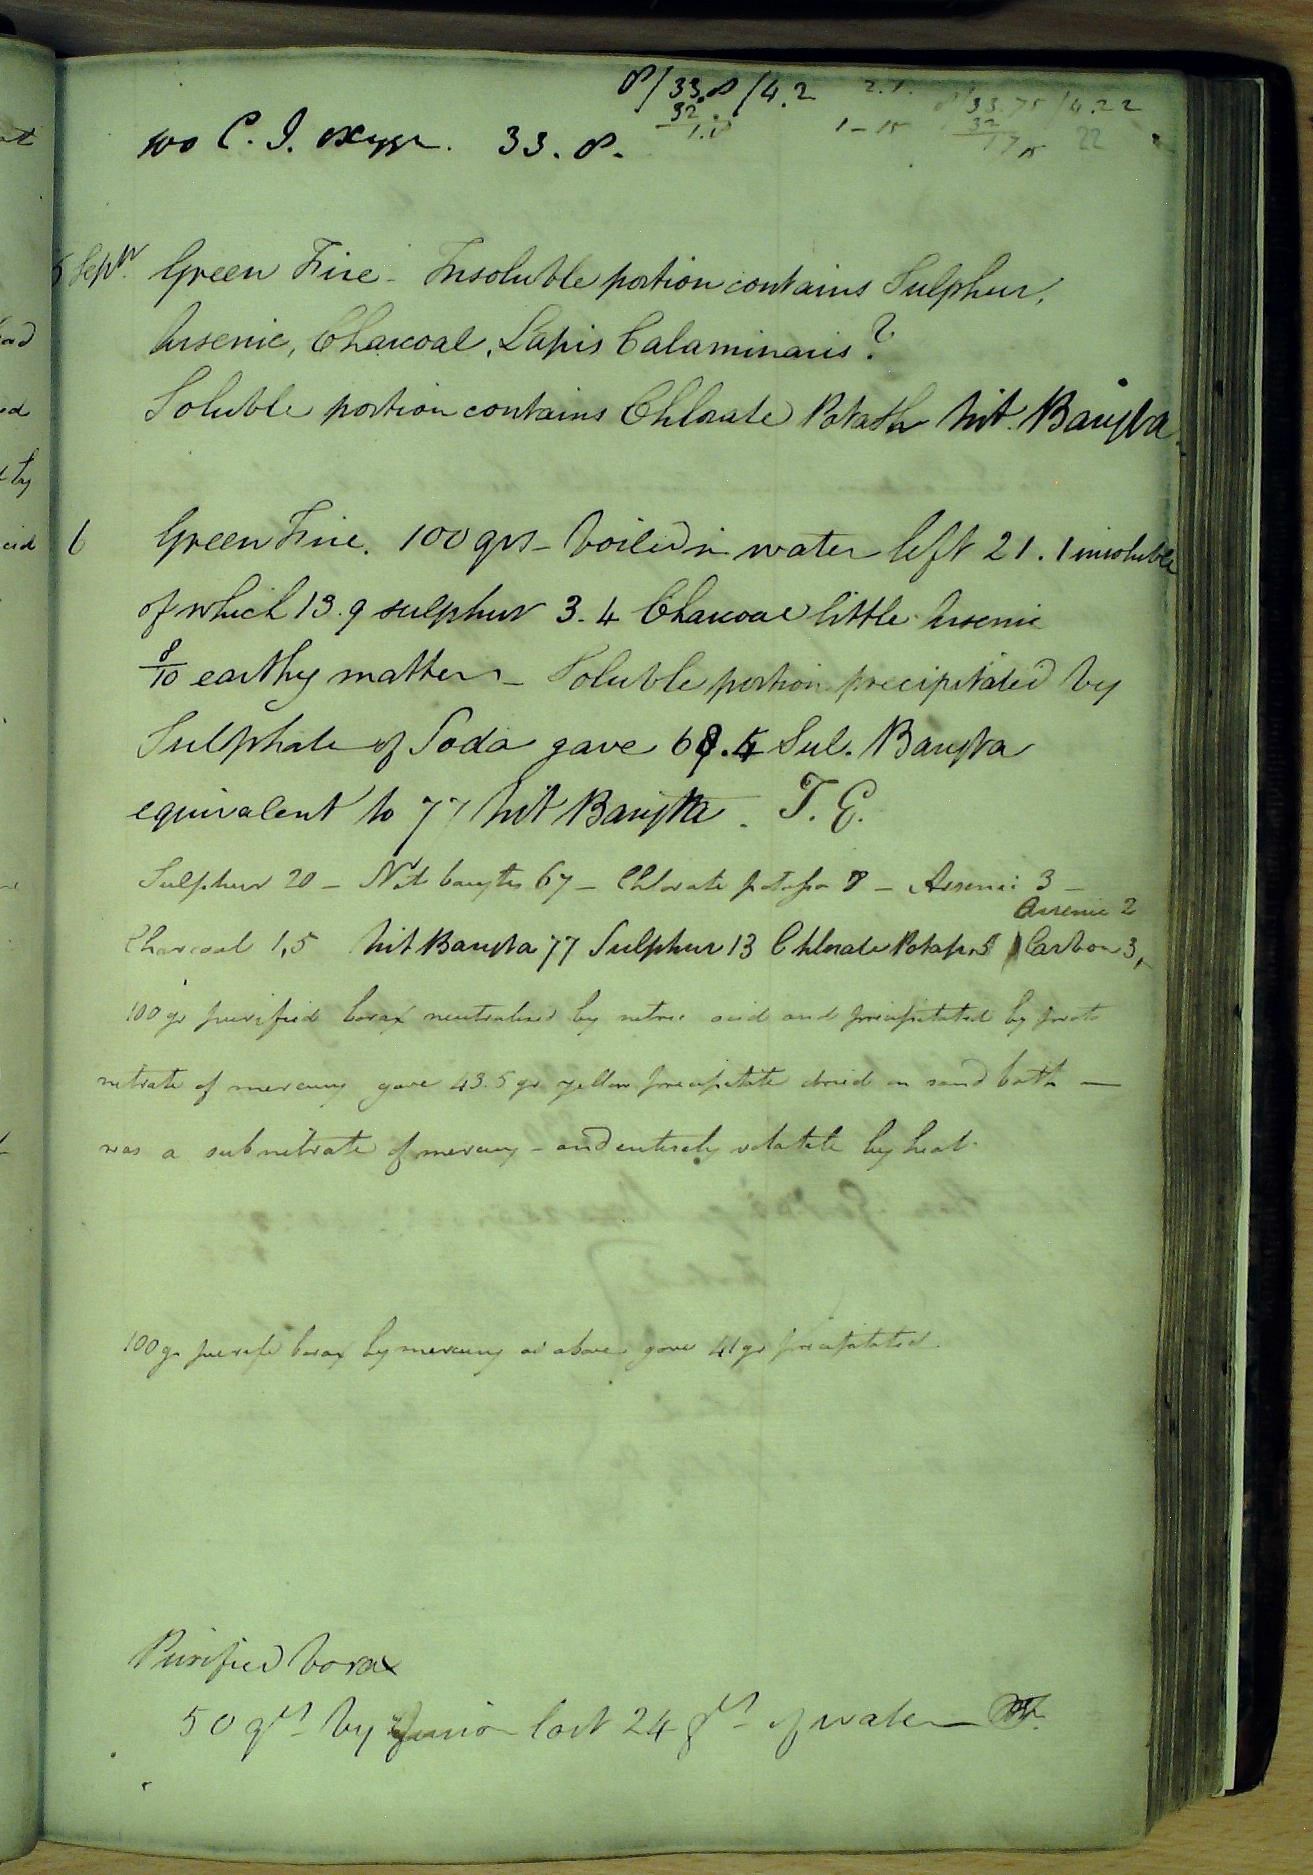 8/33.8/4.2
32
1.8
2.1.
1-15
8/33.75/4.22
32
175
22
100 C. I. oxygn. 33.8.
5 Septr. Green Fire - Insoluble portion contains Sulphur,
Arsenic, Charcoal, Lapis Calaminaris?
Soluble portion contains Chlorate Potash Nit. Baryta.
6 Green Fire. 100 grs - boiled in water left 21.1 insoluble
of which 13.9 sulphur 3.4 Charcoal little Arsenic
8/10 earthy matter - Soluble portion precipitated by
Sulphate of Soda gave 68.5 Sul. Baryta
equivalent to 77 Nit Baryta. T. E.
Sulphur 20 - Nit barytes 67 - Chlorate potassa 8 - Arsenic 3 -
Arsenic 2
Charcoal 1,5 Nit Baryta 77 Sulphur 13 Chlorate Potassa 5 Carbon 3,
100 gr purified borax neutralised by nitric acid and precipitated by proto
nitrate of mercury gave 43.5 gr yellow precipitate dried on sand bath —
was a subnitrate of mercury - and entirely volatile by heat.
100 gr purifd borax by mercury as above gave 41 gr precipitated.
Purified borax
50 grs by fusion lost 24 grs - of water —